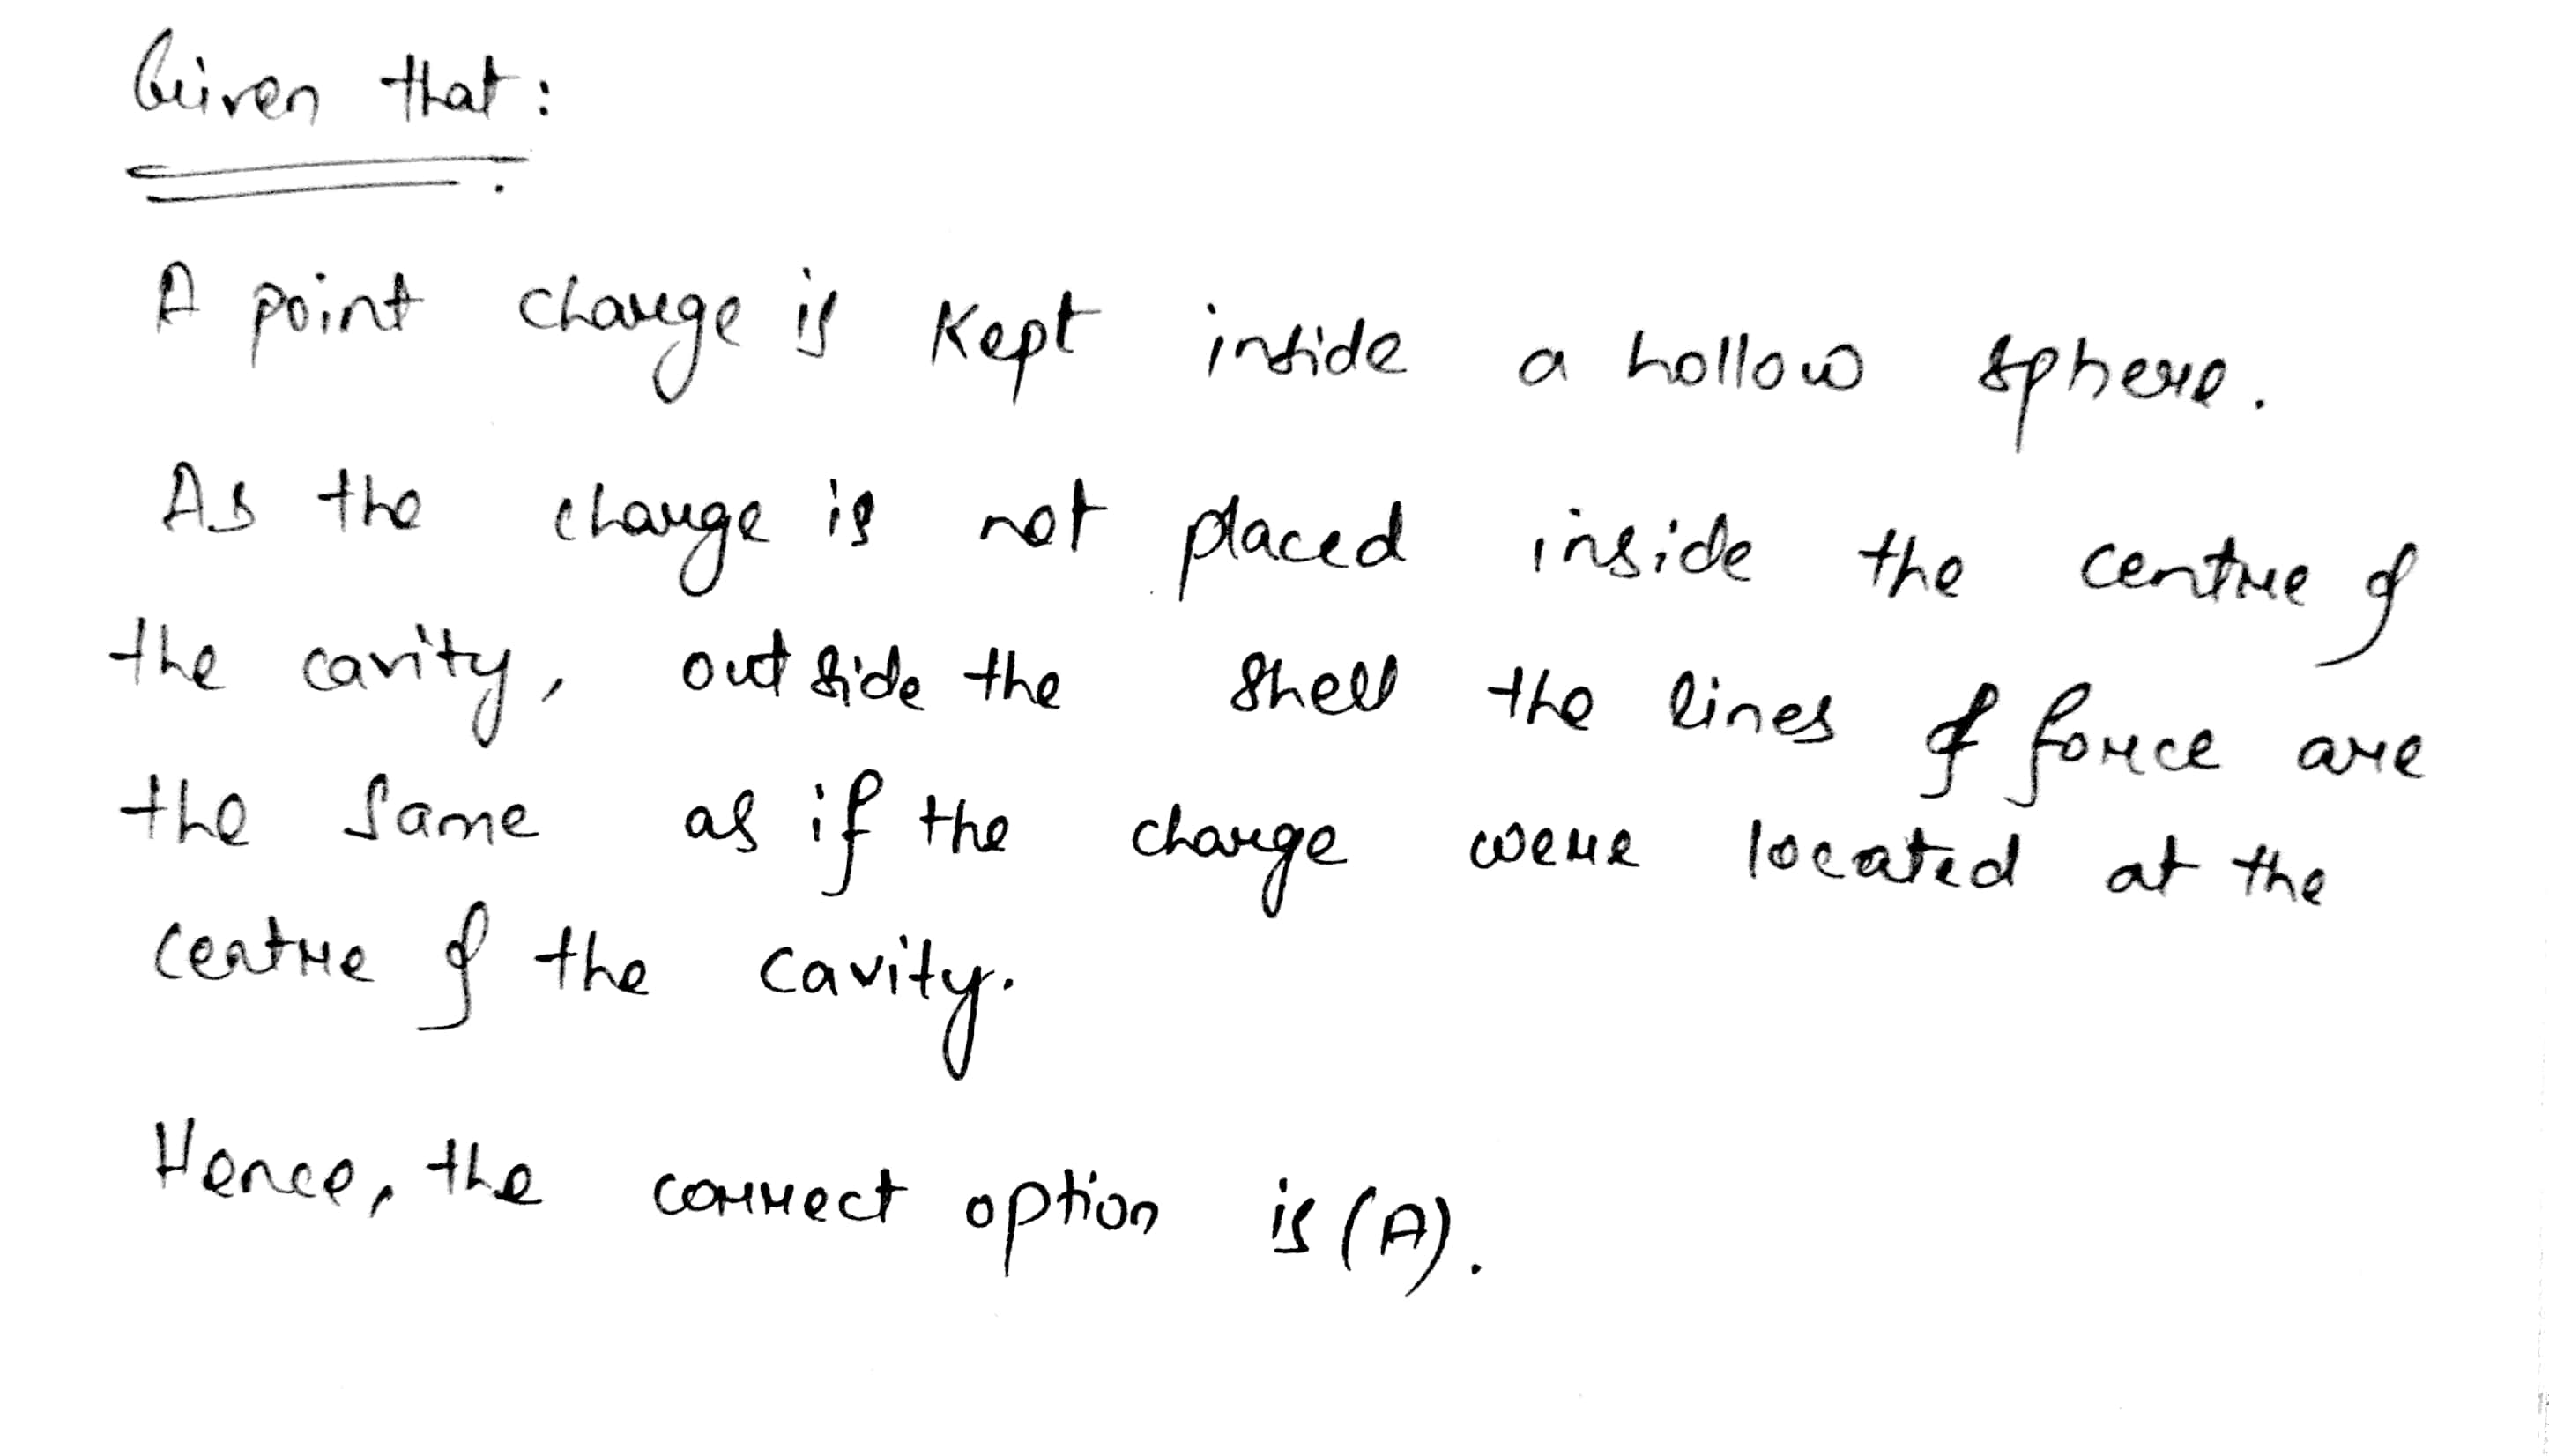 Given that:
A point charge is Kept inside a hollow sphere.
As the charge is not placed inside the centre of
the cavity, outside the shell the lines of force are
the same as if the charge were located at the
centre of the cavity.
Hence, the correct option is (A).